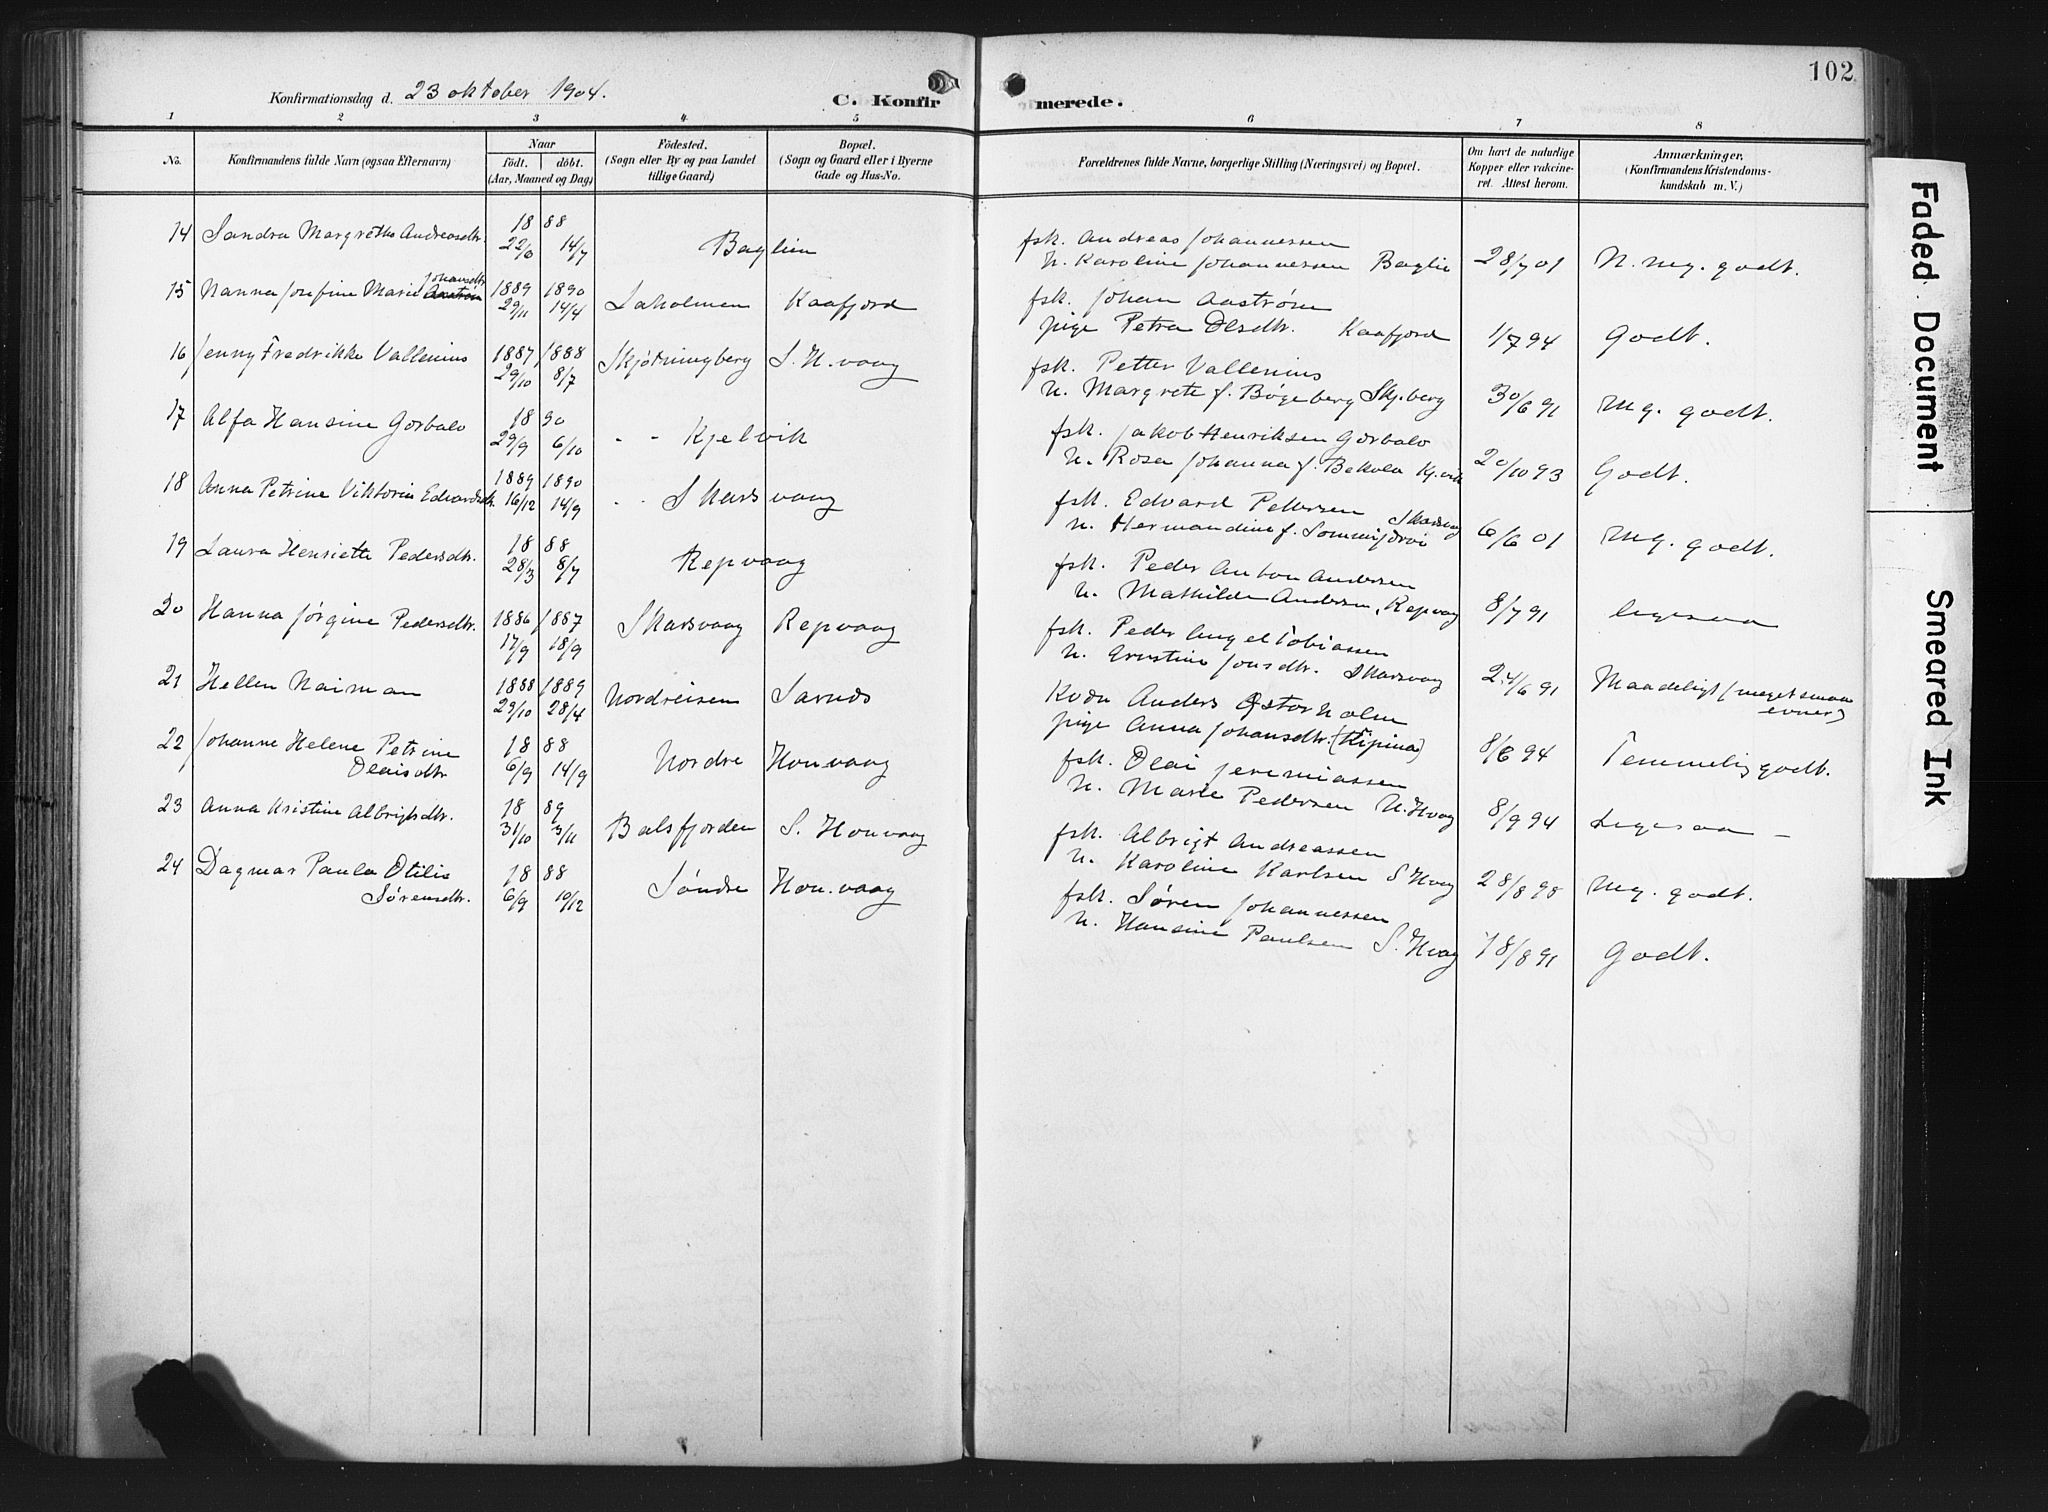 102
Konfirmationsdag d. 23 oktober 1904.
C. Konfirmerede.
1 2 3 4 5 6 7 8
No.
Konfirmandens fulde Navn (ogsaa Efternavn)
Naar
födt. döbt.
(Aar, Maaned og Dag)
Födested.
(Sogn eller By og paa Landet
tillige Gaard)
Bopæl.
(Sogn og Gaard eller i Byerne
Gade og Hus-No.
Forældrenes fulde Navne, borgerlige Stilling (Næringsvei) og Bopæl.
Om havt de naturlige
Kopper eller vakcine-
ret. Attest herom.
Anmærkninger.
(Konfirmandens Kristendoms-
kundskab m. V.)
14 Sandra Margrethe Andreasdtr. 18 88
22/6 14/7 Baglien
fsk. Andreas Johannessen
h. Karoline Johannessen Baglie 28/7 01 N. meg. godt.
15 Nanna Josefine Marie Johansdtr. 1889 1890
29/11 14/4 Laholmen Kaafjord
fsk. Johan Aastrøm
pige Petra Olsdtr. Kaafjord 1/7 94 Godt.
16 Jenny Fredrikke Vallenius 1887/1888
29/10 8/7 Skjøtningberg S. H. vaag
fsk. Petter Vallenius
h. Margrete f. Bøgeberg Skj.berg 30/6 91 Mg. godt.
17 Alfa Hansine Gorbalo 18 90
29/9 6/10 - - Kjelvik
fsk. Jakob Henriksen Gorbalo
h. Rosa Johanna f. Bekola Kj.vik 20/10 93 Godt.
18 Anna Petrine Viktoria Edvardsdtr. 1889 1890
16/12 14/9 - - Skarsvaag
fsk. Edvard Pettersen Skarsvaag
h. Hermandine f. 6/6 01 Mg. godt.
19 Laura Henriette Pedersdtr. 18 88
28/3 8/7 Repvaag
fsk. Peder Anton Andersen
h. Mathilde Andersen, Repvaag 8/7 91 ligesaa
20 Hanna Jørgine Pedersdtr. 1886/1887
17/9 18/9 Skarsvaag Repvaag
fsk. Peder Angel Tobiassen
h. Ernstine Jonsdtr. Skarsvaag 24/6 91 Maadeligt (meget smaa
evner)
21 Hellen Naiman 1888/1889
29/10 28/4 Nordreisen Sarnes
Kvæn Anders Østorholm
pige Anna Johansdtr. (Kipina) 8/6 94 Temmelig godt.
22 Johanne Helene Petrine
Olaisdtr 18 88
6/9 14/9 Nordre Honvaag
fsk. Olai Jeremiassen
h. Marie Pedersen N. Hvag 8/9 94 Ligesaa -
23 Anna Kristine Albrigtsdtr. 18 89
31/10 3/11 Balsfjorden S. Honvaag
fsk. Albrigt Andreassen
h. Karoline Karlsen S Hvag 28/8 98 Meg. godt.
24 Dagmar Paula Otilie
Sørensdtr. 18 88
6/9 10/12 Søndre Hon.vaag
fsk. Søren Johannessen
h. Hansine Paulsen S. Hvag 18/8 91 Godt.
Faded Document
Smeared Ink